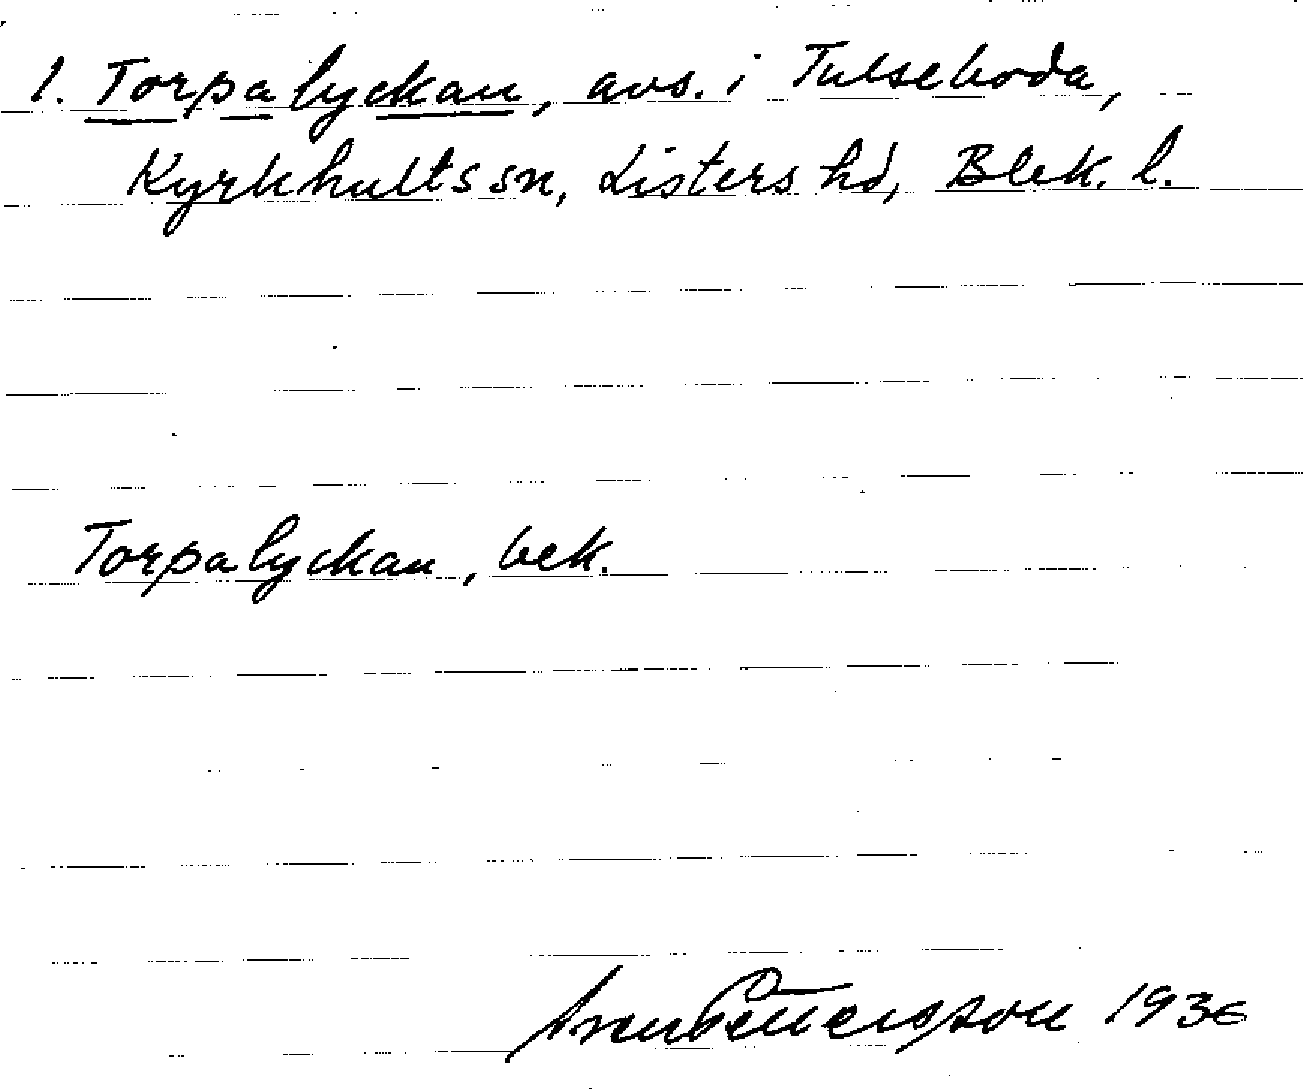 1. Torpalyckan, avs. i Tulseboda,
Kyrkhults sn, Listers hd, Blek. l.
Torpalyckan, bek.
Pettersson 1936